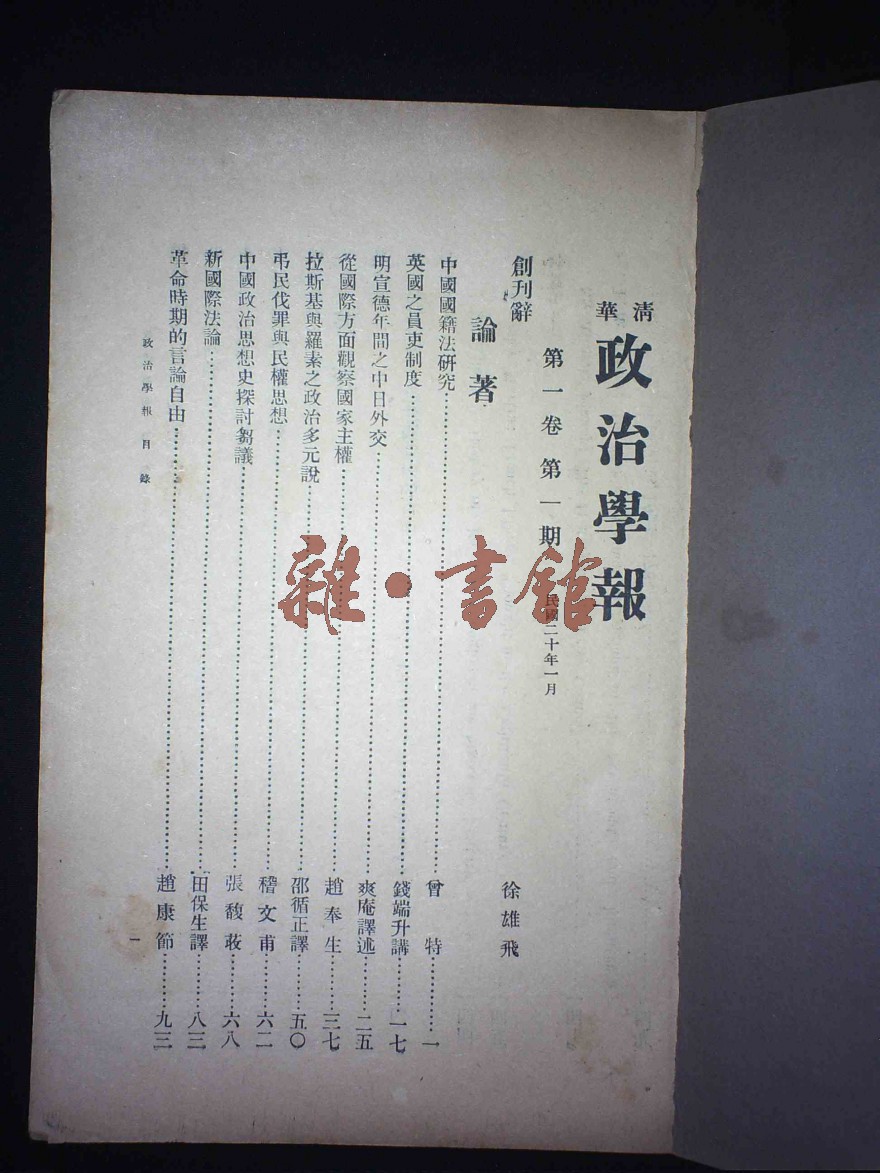 清華
政治學報
第一卷第一期
民國二十年一月
創刊辭 徐雄飛
論著
中國國籍法研究……曾特……一
英國之員吏制度……錢端升講……一七
明宣德年間之中日外交……爽庵譯述……二五
從國際方面觀察國家主權……趙奉生……三七
拉斯基與羅素之政治多元說……邵循正譯……五〇
弔民伐罪與民權思想……稽文甫……六二
中國政治思想史探討芻議……張馥荍……六八
新國際法論……田保生譯……八三
革命時期的言論自由……趙康節……九三
政治學報目錄
一
雜·書館